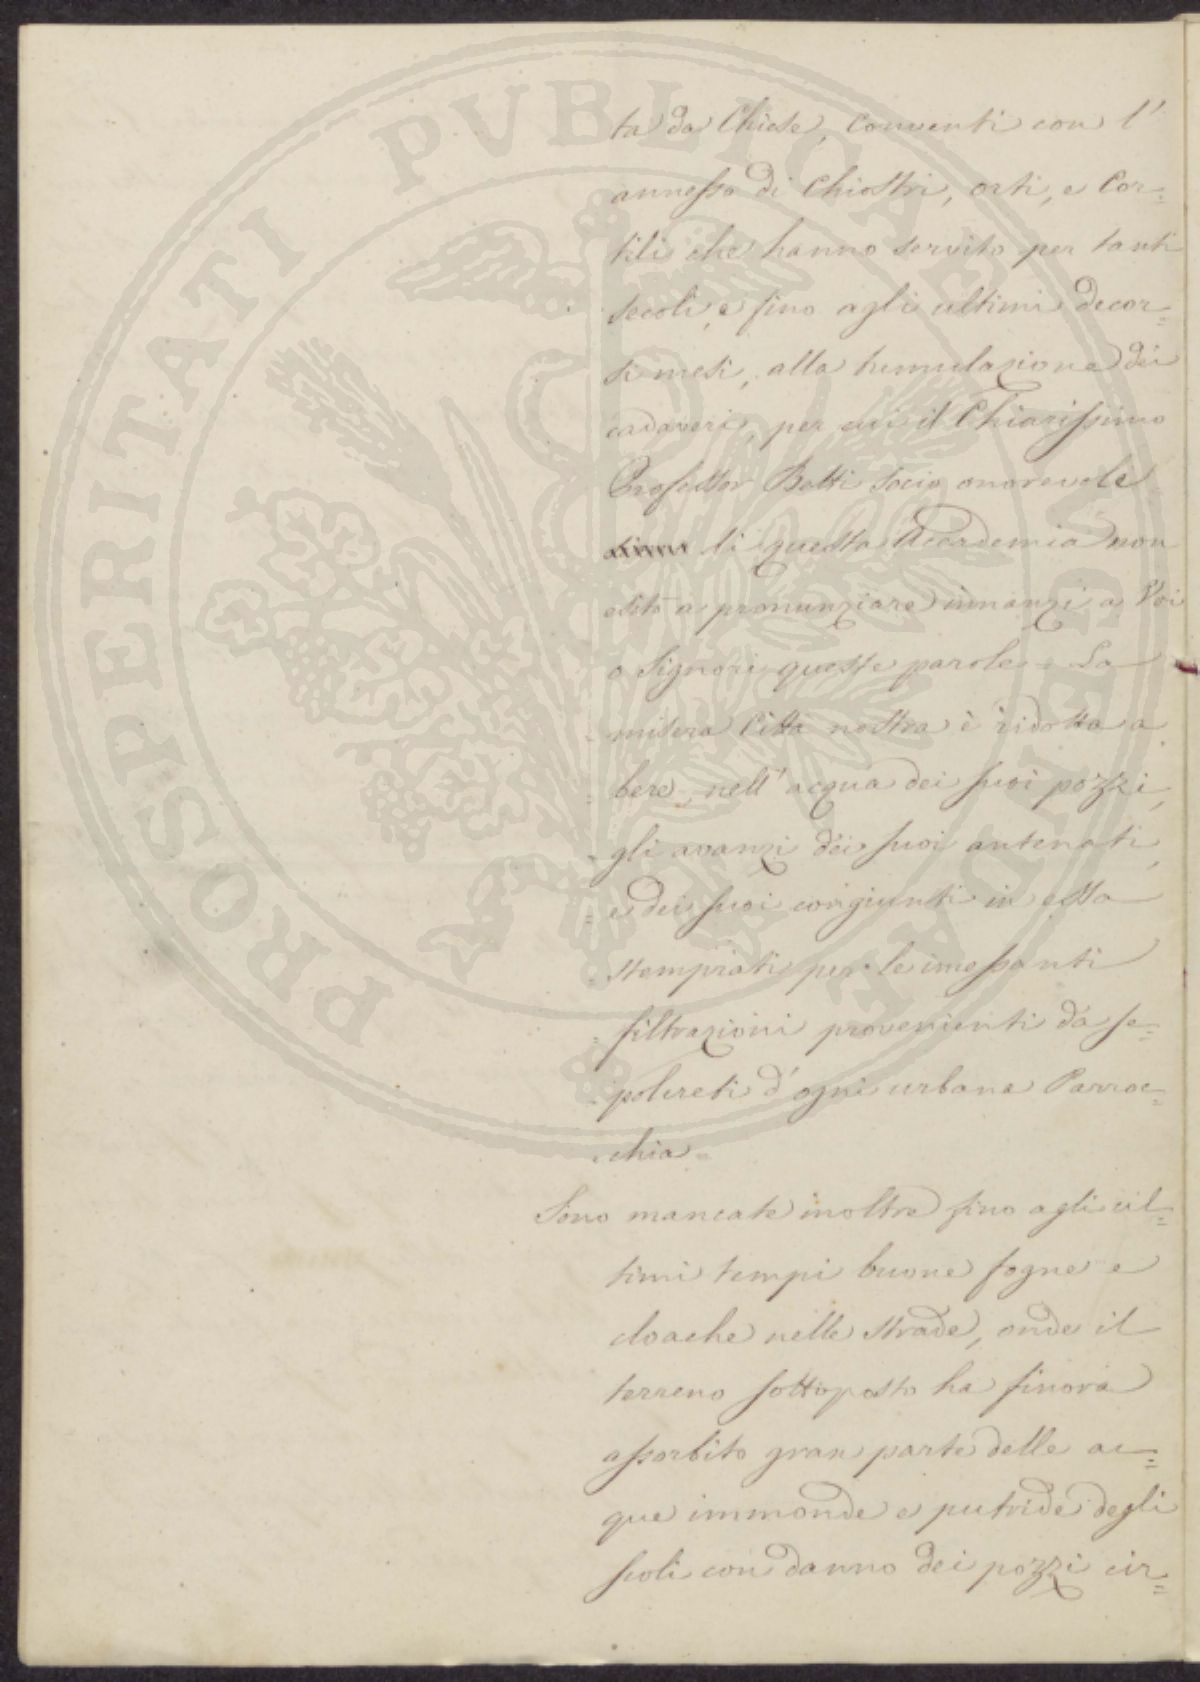 ta da Chiese, Conventi con l'
annesso di Chiostri, orti, e Cor=
tili che hanno servito per tanti
secoli, e fino agli ultimi decor=
si mesi, alla tumulazione dei
cadaveri, per cui il Chiarissimo
Professor Betti socio onorevole
di questa Accademia non
esitò a pronunziare innanzi a Voi
o Signori queste parole = La
misera Città nostra è ridotta a
bere, nell'acqua dei suoi pozzi,
gli avanzi dei suoi antenati,
= e dei suoi congiunti in essa
stemprati per le incessanti
filtrazioni provenienti da se=
polcreti d'ogni urbana Parroc=
chia =
Sono mancate inoltre fino agli ul=
timi tempi buone fogne e
cloache nelle strade, onde il
terreno sottoposto ha finora
assorbito gran parte delle ac=
que immonde e putride degli
scoli con danno dei pozzi cir=
PROSPERITATI PVBLICAE AVGENDAE